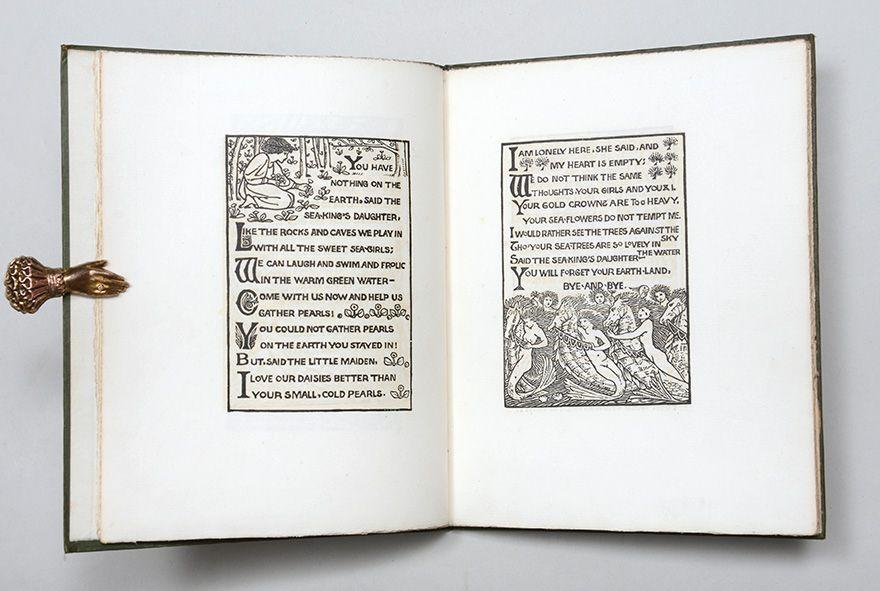 YOU HAVE
NOTHING ON THE
EARTH, SAID THE
SEA-KING'S DAUGHTER,
LIKE THE ROCKS AND CAVES WE PLAY IN
WITH ALL THE SWEET SEA-GIRLS;
WE CAN LAUGH AND SWIM AND FROLIC
IN THE WARM GREEN WATER—
COME WITH US NOW AND HELP US
GATHER PEARLS!
YOU COULD NOT GATHER PEARLS
ON THE EARTH YOU STAYED IN!
BUT, SAID THE LITTLE MAIDEN,
I LOVE OUR DAISIES BETTER THAN
YOUR SMALL, COLD PEARLS.
I AM LONELY HERE, SHE SAID, AND
MY HEART IS EMPTY;
WE DO NOT THINK THE SAME
THOUGHTS YOUR GIRLS AND YOU & I.
YOUR GOLD CROWNS ARE TOO HEAVY,
YOUR SEA-FLOWERS DO NOT TEMPT ME.
I WOULD RATHER SEE THE TREES AGAINST THE SKY
THO' YOUR SEATREES ARE SO LOVELY IN THE WATER
SAID THE SEA-KING'S DAUGHTER—
YOU WILL FORGET YOUR EARTH-LAND,
BYE-AND-BYE.